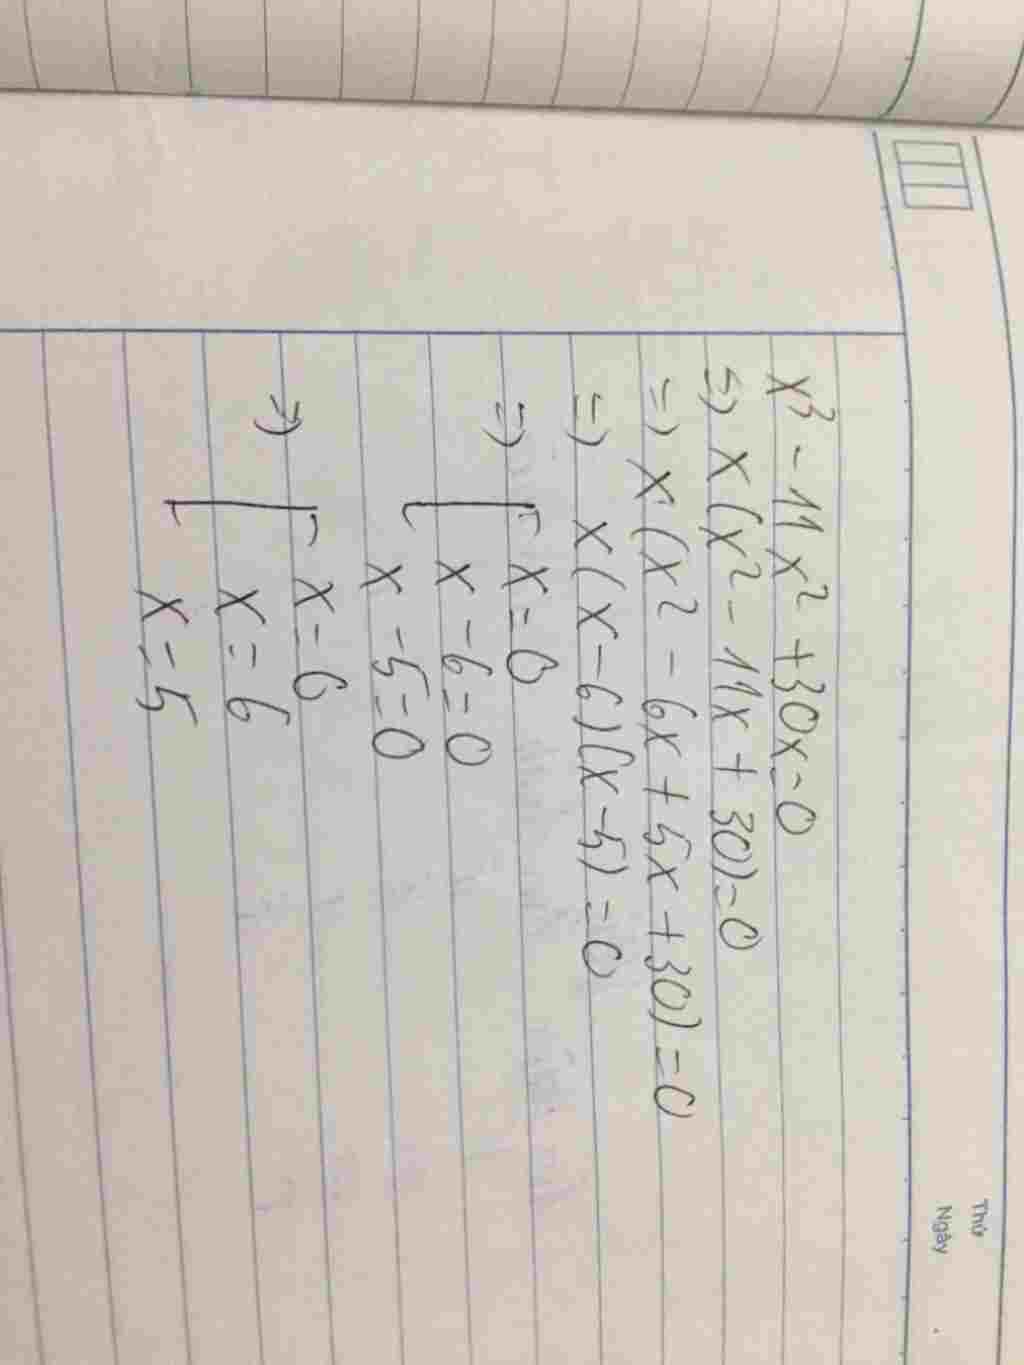 Thứ
Ngày
x³ - 11x² + 30x = 0
=> x(x² - 11x + 30) = 0
=> x(x² - 6x + 5x + 30) = 0
=> x(x - 6)(x - 5) = 0
=> [ x = 0
x - 6 = 0
x - 5 = 0
=> [ x = 6
x = 6
x = 5